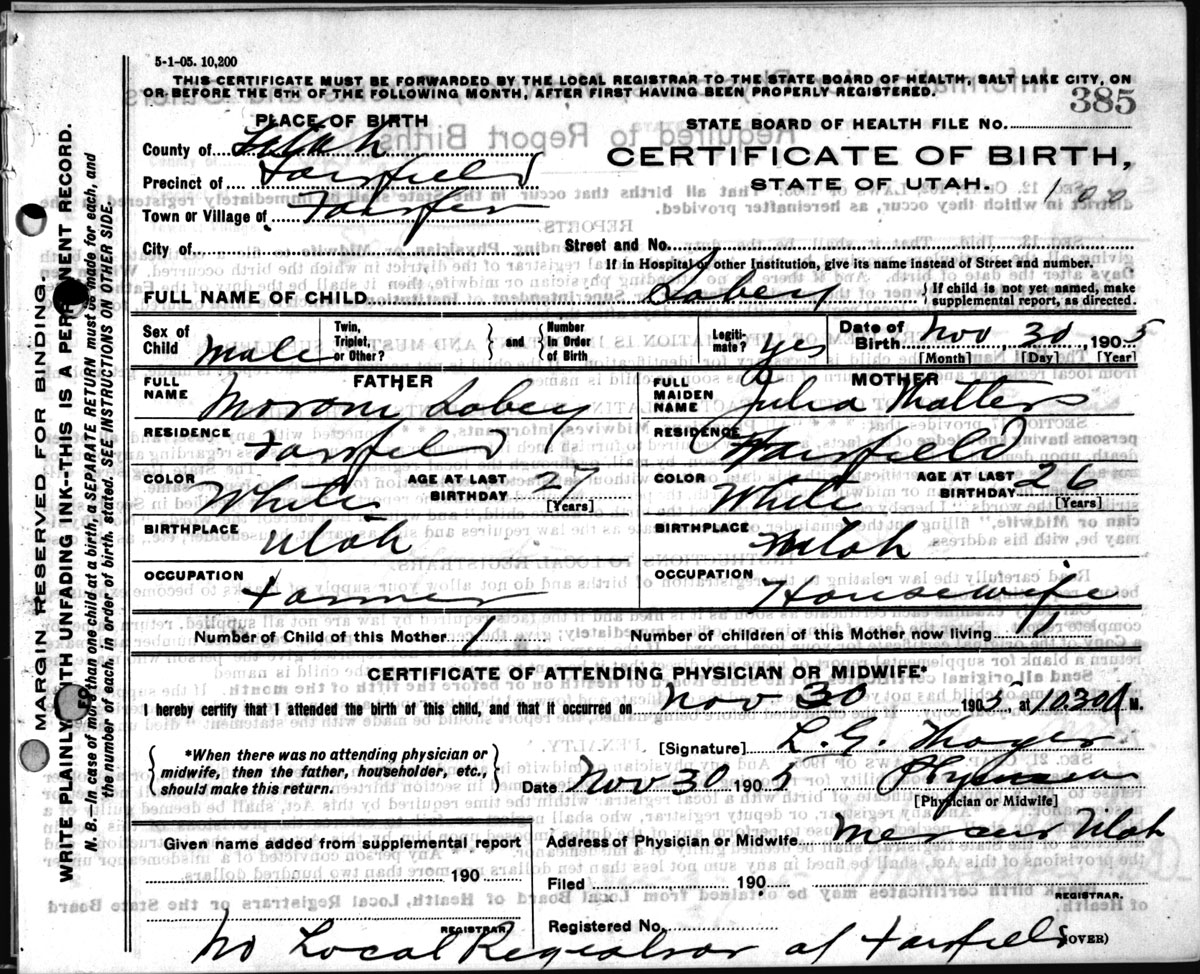 5-1-05. 10,200
THIS CERTIFICATE MUST BE FORWARDED BY THE LOCAL REGISTRAR TO THE STATE BOARD OF HEALTH, SALT LAKE CITY, ON
OR BEFORE THE 5TH OF THE FOLLOWING MONTH, AFTER FIRST HAVING BEEN PROPERLY REGISTERED.
385
PLACE OF BIRTH
STATE BOARD OF HEALTH FILE NO.
County of Utah
CERTIFICATE OF BIRTH,
Precinct of Fairfield
STATE OF UTAH.
100
Town or Village of
City of
Street and No.
If in Hospital or other Institution, give its name instead of Street and number.
FULL NAME OF CHILD Sabey
{ If child is not yet named, make
supplemental report, as directed.
Sex of Child Male
Twin, Triplet, or Other? } and { Number In Order of Birth
Legiti- mate? yes
Date of Birth Nov 30 1905
[Month] [Day] [Year]
FATHER
MOTHER
FULL NAME Moroni Sabey
FULL MAIDEN NAME Julia
RESIDENCE Fairfield
RESIDENCE Fairfield
COLOR White AGE AT LAST BIRTHDAY 27 [Years]
COLOR White AGE AT LAST BIRTHDAY 26 [Years]
BIRTHPLACE Utah
BIRTHPLACE Utah
OCCUPATION Farmer
OCCUPATION Housewife
Number of Child of this Mother 1
Number of children of this Mother now living
CERTIFICATE OF ATTENDING PHYSICIAN OR MIDWIFE*
I hereby certify that I attended the birth of this child, and that it occurred on Nov 30 1905, at 10.30 M.
{ *When there was no attending physician or
midwife, then the father, householder, etc.,
should make this return. }
[Signature] L. G. Thayer
Date Nov 30 1905
Physician
[Physician or Midwife]
Given name added from supplemental report
Address of Physician or Midwife Mercur Utah
190
Filed 190
REGISTRAR.
REGISTRAR.
Registered No.
No Local Registrar at Fairfield
(OVER)
MARGIN RESERVED FOR BINDING.
WRITE PLAINLY WITH UNFADING INK--THIS IS A PERMANENT RECORD.
N. B.—In case of more than one child at a birth, a SEPARATE RETURN must be made for each, and
the number of each, in order of birth, stated. SEE INSTRUCTIONS ON OTHER SIDE.